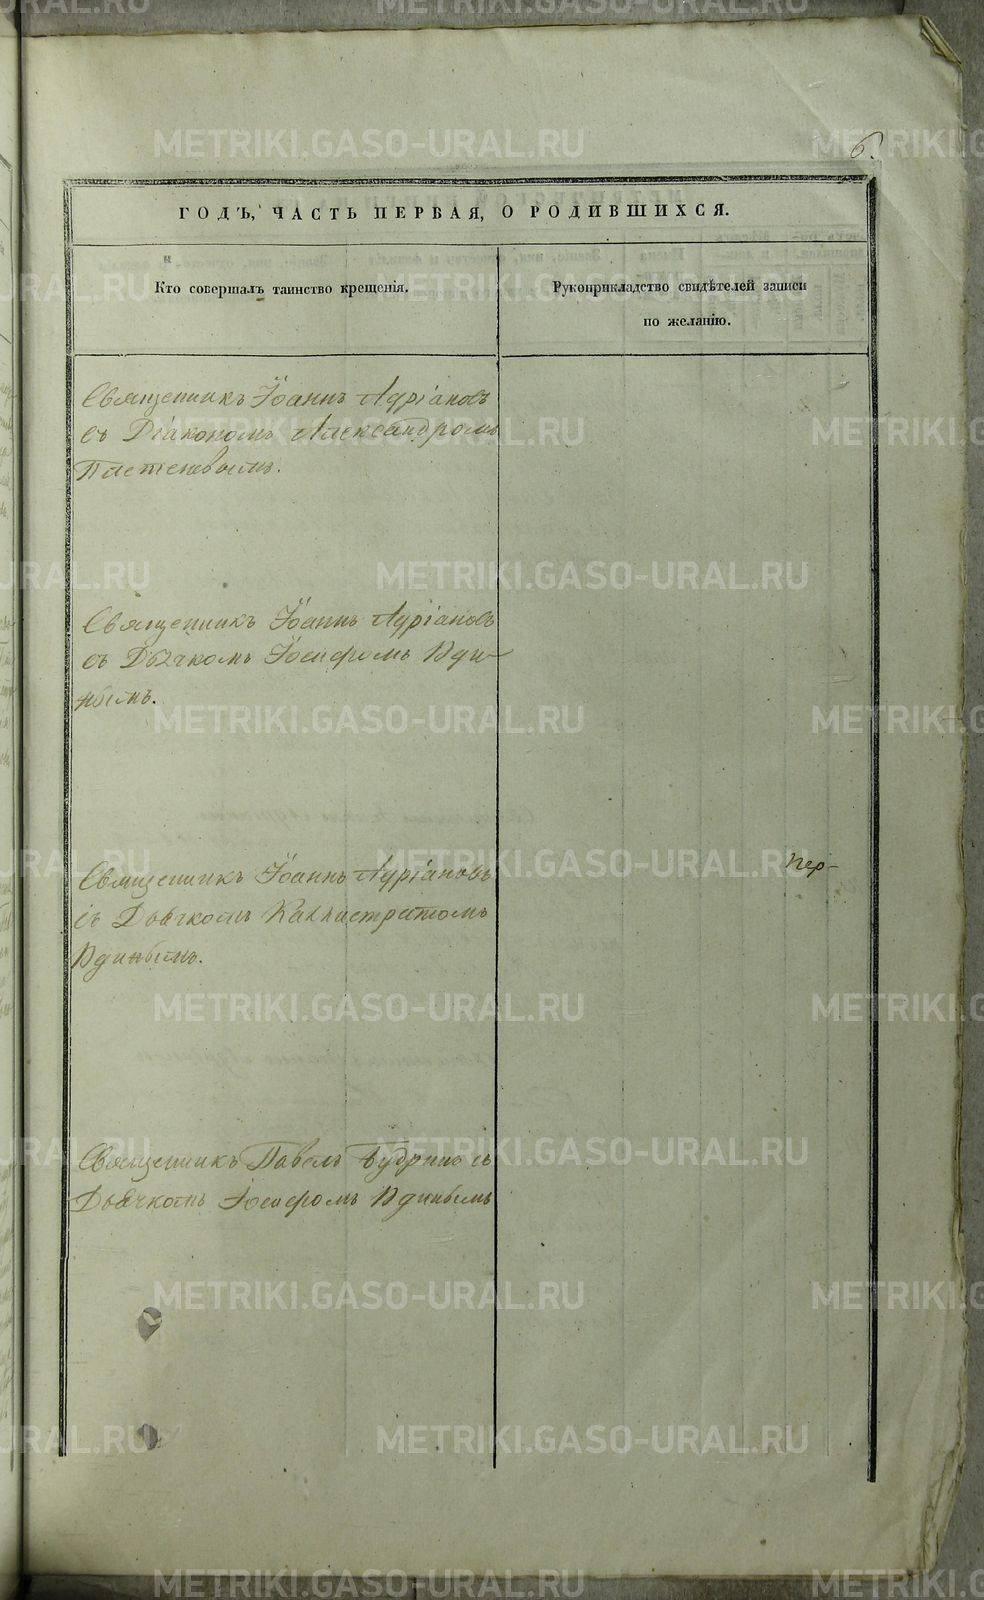 6.
ГОДЪ, ЧАСТЬ ПЕРВАЯ, О РОДИВШИХСЯ.
Кто совершалъ таинство крещенія.
Рукоприкладство свидѣтелей записи
по желанію.
Священникъ Іоаннъ Адріановъ
съ Діакономъ Александромъ
Священникъ Іоаннъ Адріановъ
съ Дьячкомъ Іосифомъ Юди-
нымъ.
Пер-
Священникъ Іоаннъ Адріановъ
съ Дьячкомъ Каллистратомъ
Юдинымъ.
Священникъ Павелъ Бубринъ съ
Дьячкомъ Іосифомъ Юдинымъ
METRIKI.GASO-URAL.RU